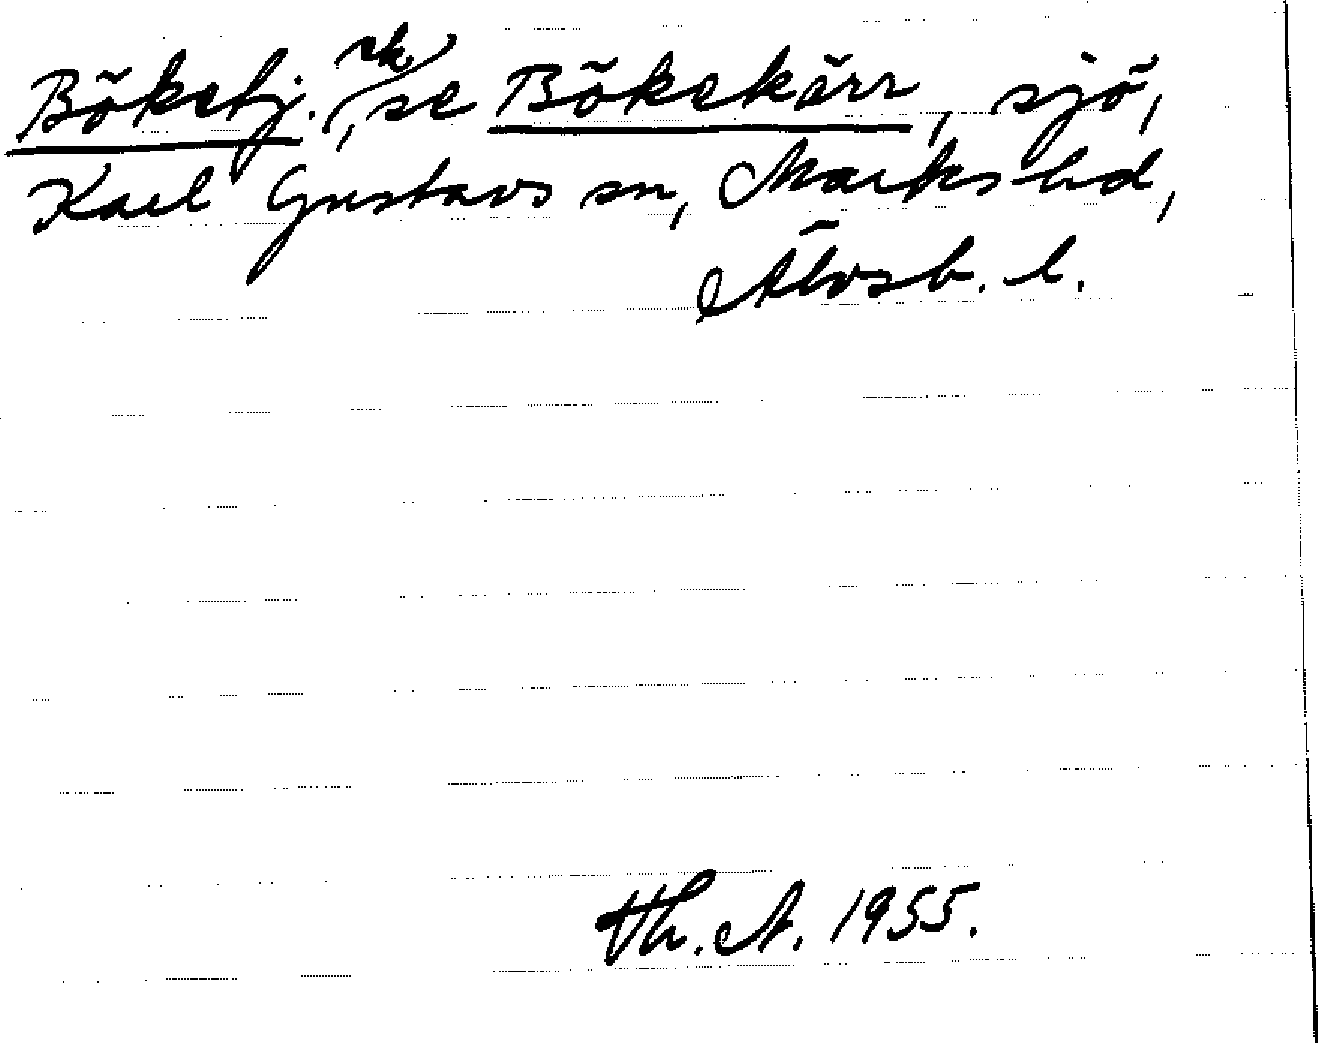 Böketj. rk, se Bökekärr, sjö,
Karl Gustavs sn, Marks hd,
Älvsb. l.
Th. A. 1955.